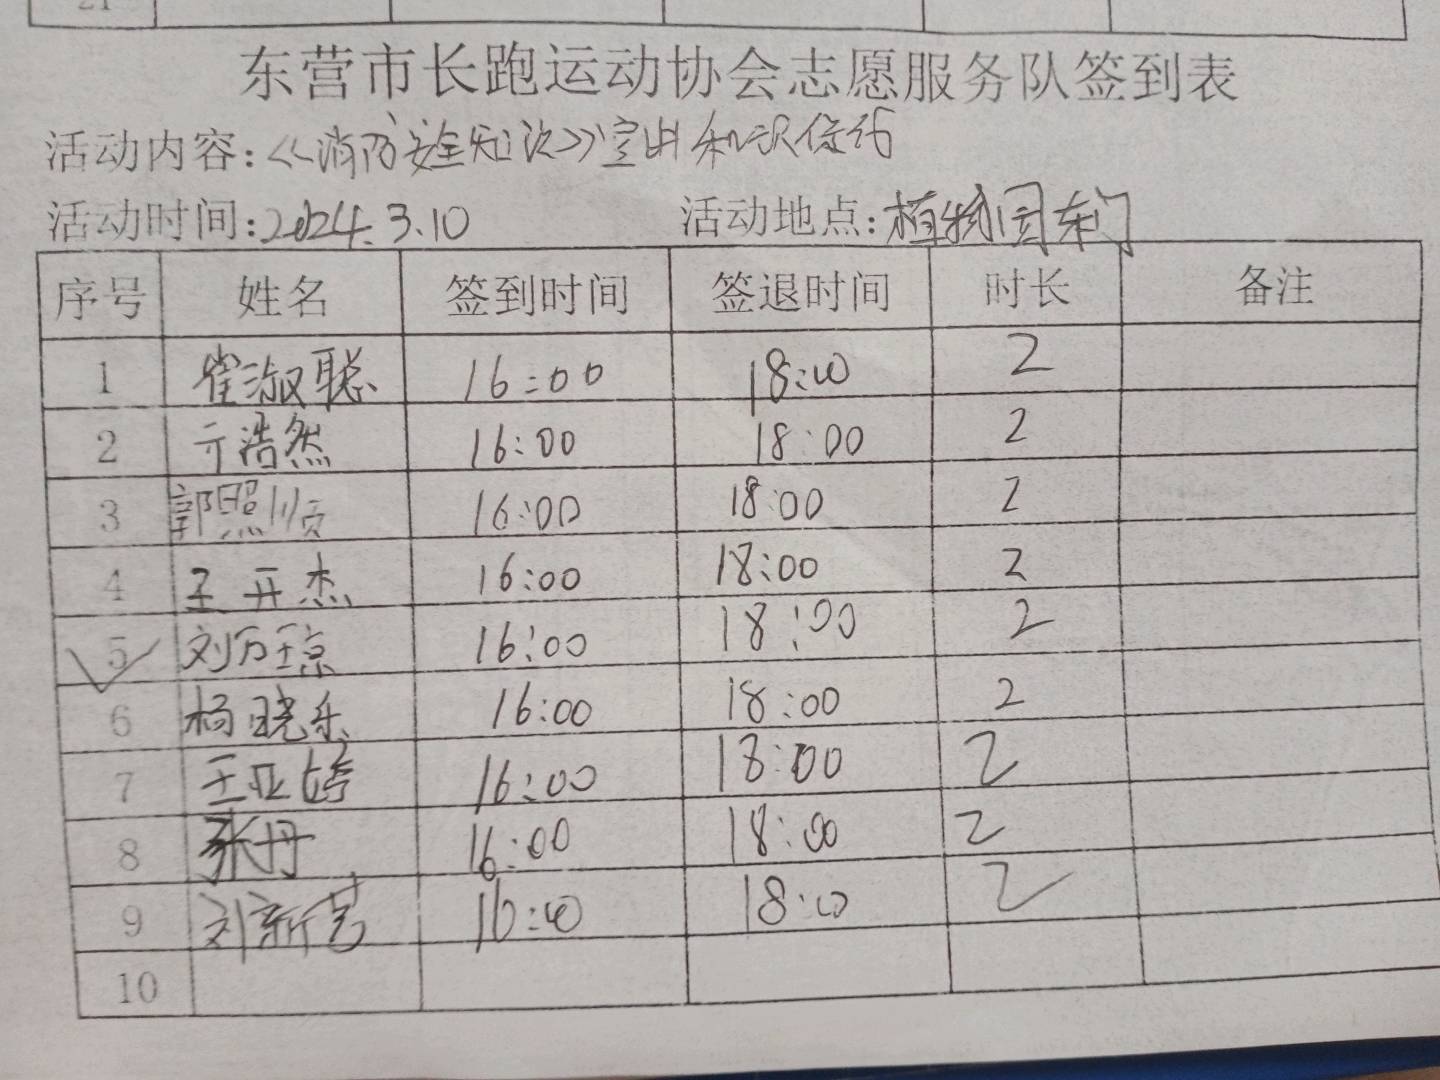 21
东营市长跑运动协会志愿服务队签到表
活动内容:《消防安全知识》宣
活动时间:2024.3.10 活动地点:植物园东门
序号 姓名 签到时间 签退时间 时长 备注
1 崔淑聪 16:00 18:00 2
2 亓浩然 16:00 18:00 2
3 郭照顺 16:00 18:00 2
4 王开杰 16:00 18:00 2
5 刘万琼 16:00 18:00 2
6 杨晓乐 16:00 18:00 2
7 王亚婷 16:00 18:00 2
8 张丹 16:00 18:00 2
9 刘新艺 16:00 18:00 2
10